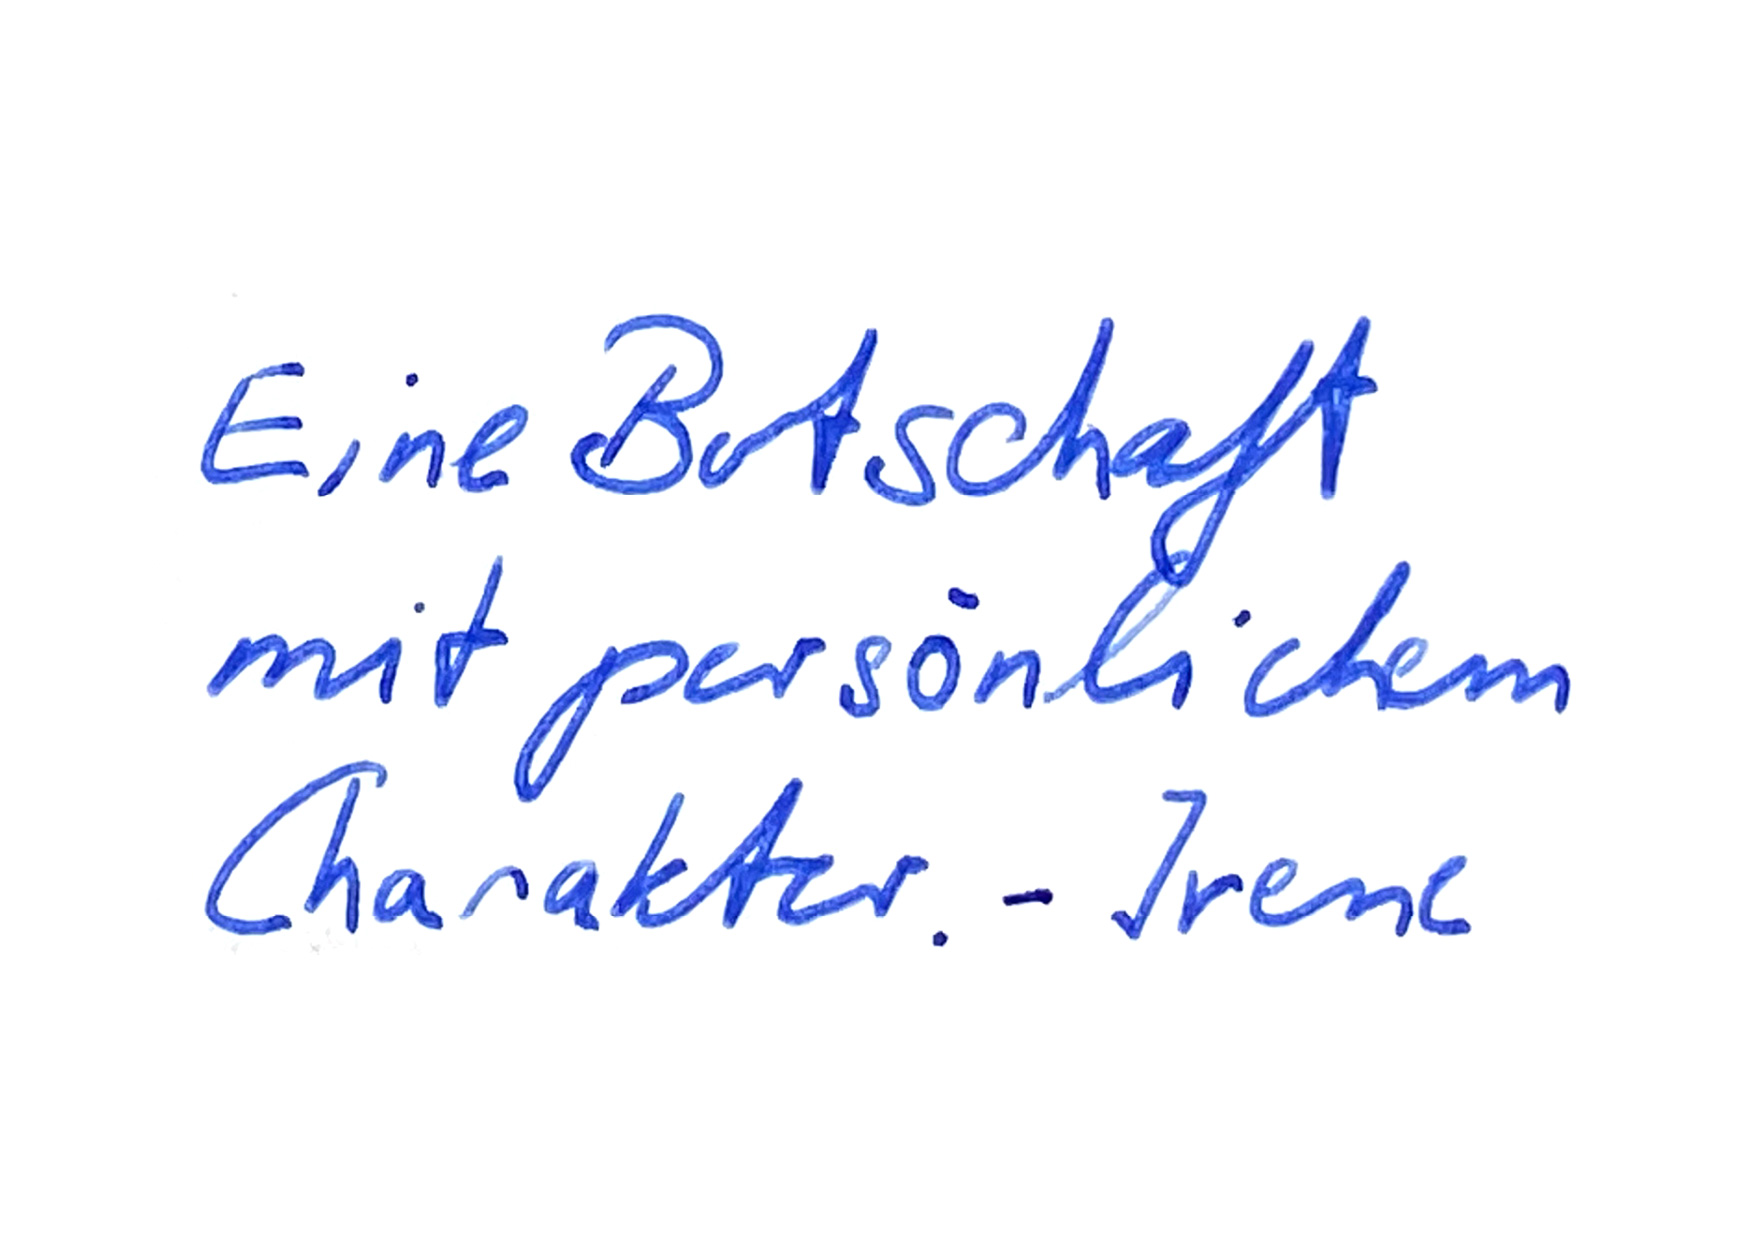 Eine Botschaft
mit persönlichem
Charakter. - Irene